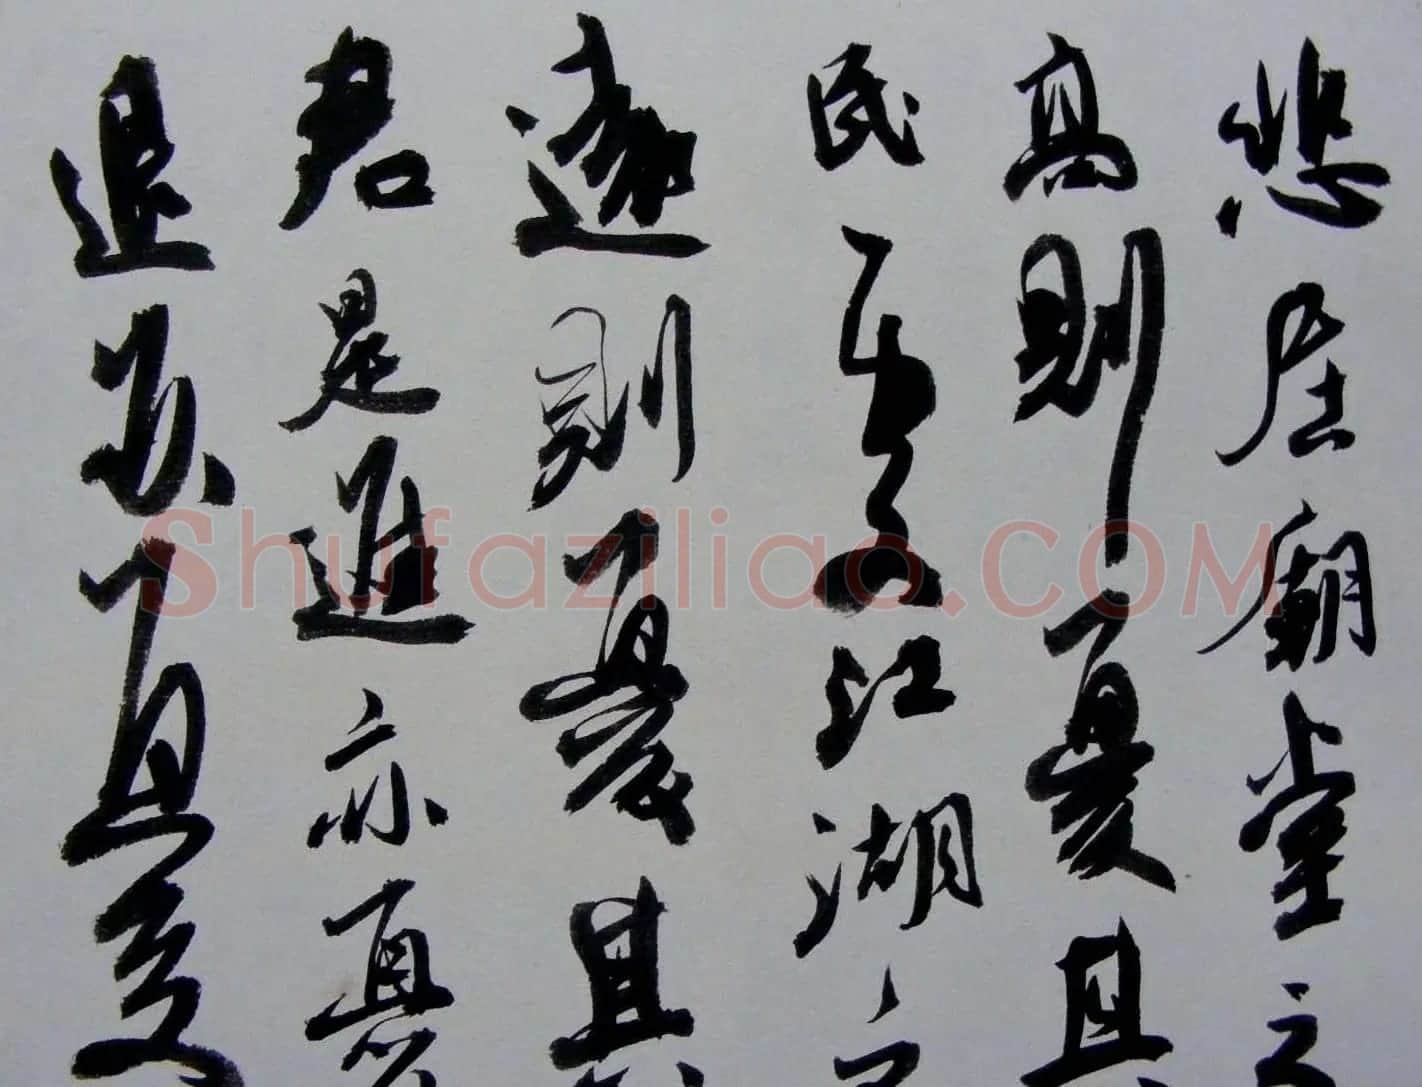 悲居廟堂之
高則憂其
民處江湖之
遠則憂其
君是進亦憂
退亦憂
Shufaziliao.COM